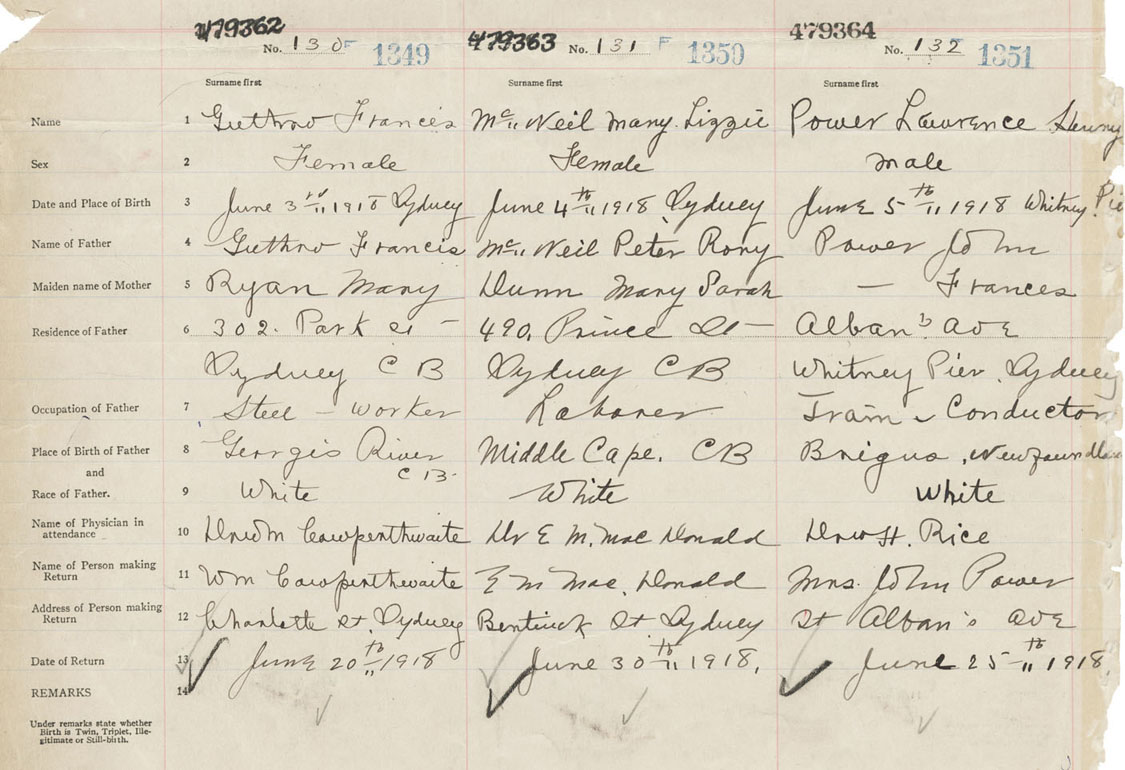 479362 479363 479364
No. 130 F 1349 No. 131 F 1350 No. 132 1351
Surname first Surname first Surname first
Name 1 Guthro Francis Mc" Neil Mary Lizzie Power Lawrence Henry
Sex 2 Female Female Male
Date and Place of Birth 3 June 3rd" 1918 Sydney June 4th" 1918 Sydney June 5th" 1918 Whitney Pie
Name of Father 4 Guthro Francis Mc" Neil Peter Rory Power John
Maiden name of Mother 5 Ryan Mary Dunn Mary Sarah — Frances
Residence of Father 6 302. Park St — 490, Prince St — Alban's Ave
Sydney C B Sydney CB Whitney Pier, Sydney
Occupation of Father 7 Steel - Worker Laborer Tram - Conductor
Place of Birth of Father 8 Georges River Middle Cape. CB Brigus, Newfoundla
and C B.
Race of Father. 9 White White White
Name of Physician in
attendance 10 Dr Wm Cowperthwaite Dr E M. Mac Donald Drew H. Rice
Name of Person making
Return 11 Wm Cowperthwaite E M Mac. Donald Mrs. John Power
Address of Person making
Return 12 Charlotte St. Sydney Bentinck St Sydney St Alban's Ave
Date of Return 13 June 20th" 1918 June 30th" 1918, June 25th" 1918,
REMARKS 14
Under remarks state whether
Birth is Twin, Triplet, Ille-
gitimate or Still-birth.